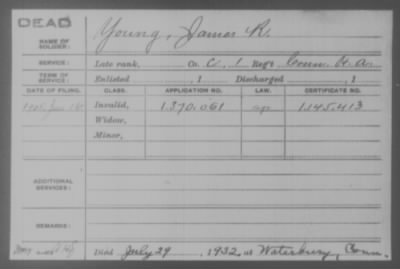 DEAD
NAME OF SOLDIER: Young, James R.
SERVICE: Late rank, Co. C, 1 Reg't Conn. H. A.
TERM OF SERVICE: Enlisted , 1 Discharged , 1
DATE OF FILING. CLASS. APPLICATION NO. LAW. CERTIFICATE NO.
Invalid, 1.370.061 1.145.413
Widow,
Minor,
ADDITIONAL SERVICES:
REMARKS:
Died July 29, 1932, at Waterbury, Conn.